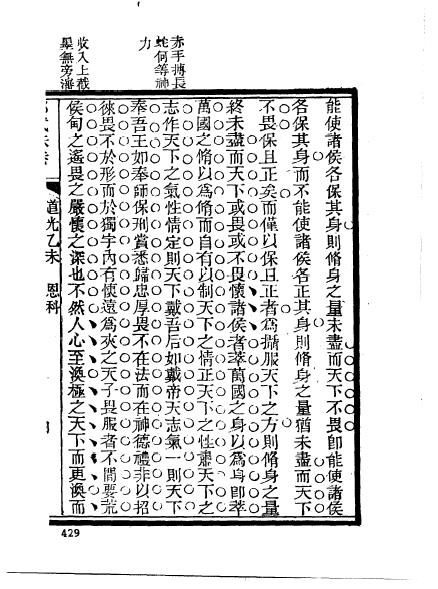 赤手搏長
蛇何等神
力
收入上截
無旁瀋
能使諸侯各保其身則脩身之量未盡而天下不畏卽能使諸侯
各保其身而不能使諸侯各正其身則脩身之量猶未盡而天下
不畏保且正矣而僅以保且正者爲攝服天下之方則脩身之量
終未盡而天下或畏或不畏懷諸侯者萃萬國之身以爲身卽萃
萬國之脩以爲脩而自有以制天下之情正天下之性肅天下之
志作天下之氣性情定則天下戴吾后如戴帝天志氣一則天下
奉吾王如奉師保刑賞悉歸忠厚畏不在法而在神德禮非以招
徠畏不於形而於獨宇內有懷遠爲夾之天子畏服者不間要荒
侯甸之遙畏之嚴懷之深也不然人心至渙極之天下而更渙而
道光乙未 恩科
429